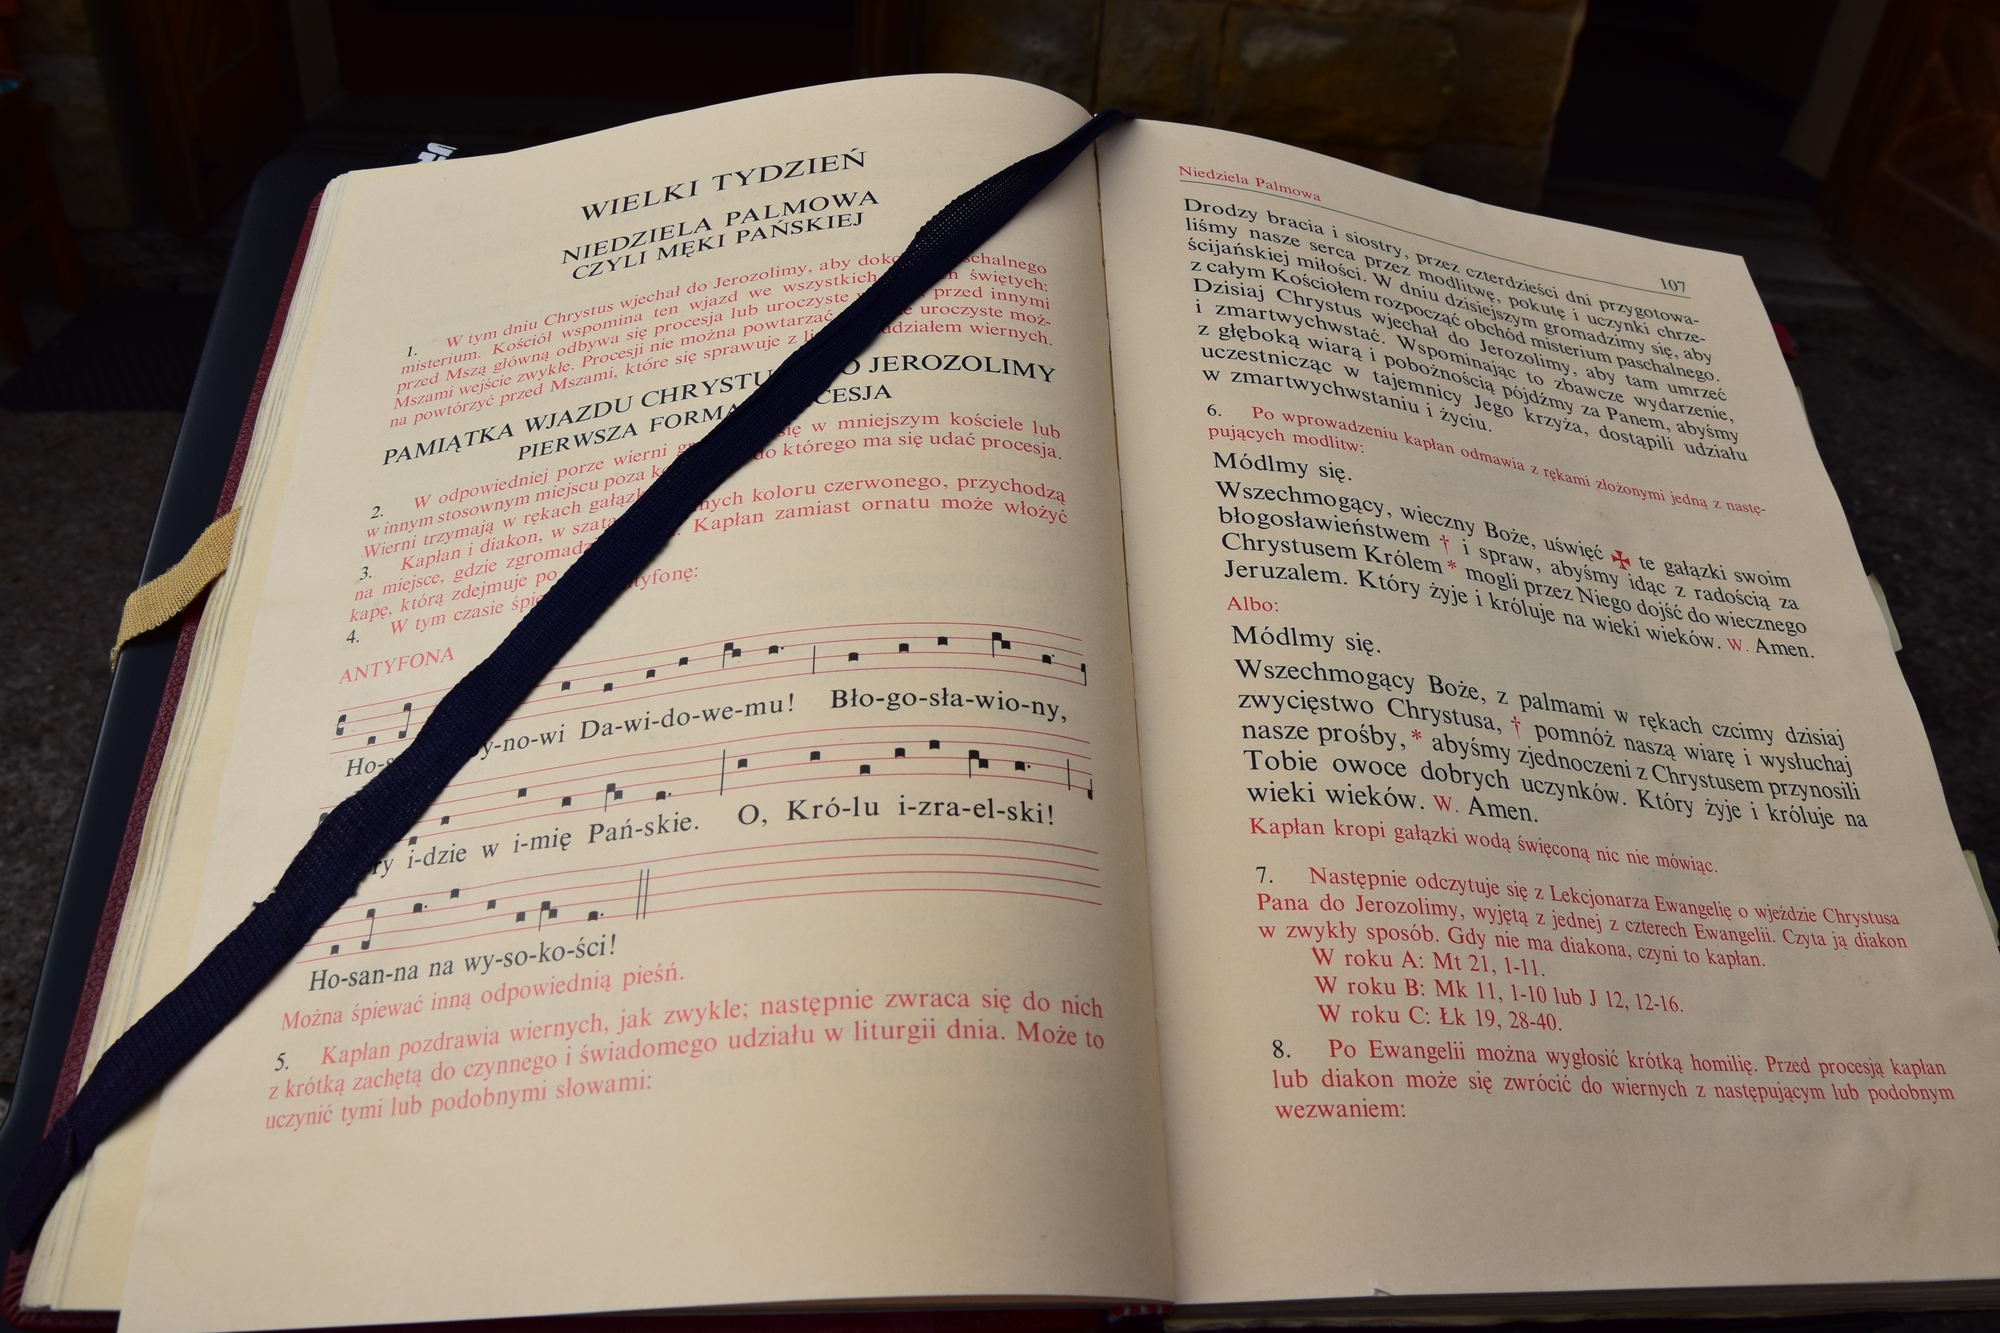 WIELKI TYDZIEŃ
NIEDZIELA PALMOWA
CZYLI MĘKI PAŃSKIEJ
1. W tym dniu Chrystus wjechał do Jerozolimy, aby
misterium. Kościół wspomina ten wjazd we wszystkich świętych:
przed Mszą główną odbywa się procesja lub uroczyste przed innymi
Mszami wejście zwykłe. Procesji nie można powtarzać, uroczyste moż-
na powtórzyć przed Mszami, które się sprawuje z udziałem wiernych.
PAMIĄTKA WJAZDU JEROZOLIMY
PIERWSZA FORMA
2. W odpowiedniej porze wierni się w mniejszym kościele lub
w innym stosownym miejscu poza do którego ma się udać procesja.
Wierni trzymają w rękach
3. Kapłan i diakon, w koloru czerwonego, przychodzą
na miejsce, gdzie Kapłan zamiast ornatu może włożyć
kapę, którą zdejmuje po
4. W tym czasie
ANTYFONA
Ho- y-no-wi Da-wi-do-we-mu! Bło-go-sła-wio-ny,
ry i-dzie w i-mię Pań-skie. O, Kró-lu i-zra-el-ski!
Ho-san-na na wy-so-ko-ści!
Można śpiewać inną odpowiednią pieśń.
5. Kapłan pozdrawia wiernych, jak zwykle; następnie zwraca się do nich
z krótką zachętą do czynnego i świadomego udziału w liturgii dnia. Może to
uczynić tymi lub podobnymi słowami:
Niedziela Palmowa 107
Drodzy bracia i siostry, przez czterdzieści dni przygotowa-
liśmy nasze serca przez modlitwę, pokutę i uczynki chrze-
ścijańskiej miłości. W dniu dzisiejszym gromadzimy się, aby
z całym Kościołem rozpocząć obchód misterium paschalnego.
Dzisiaj Chrystus wjechał do Jerozolimy, aby tam umrzeć
i zmartwychwstać. Wspominając to zbawcze wydarzenie,
z głęboką wiarą i pobożnością pójdźmy za Panem, abyśmy
uczestnicząc w tajemnicy Jego krzyża, dostąpili udziału
w zmartwychwstaniu i życiu.
6. Po wprowadzeniu kapłan odmawia z rękami złożonymi jedną z nastę-
pujących modlitw:
Módlmy się.
Wszechmogący, wieczny Boże, uświęć ✠ te gałązki swoim
błogosławieństwem † i spraw, abyśmy idąc z radością za
Chrystusem Królem * mogli przez Niego dojść do wiecznego
Jeruzalem. Który żyje i króluje na wieki wieków. W. Amen.
Albo:
Módlmy się.
Wszechmogący Boże, z palmami w rękach czcimy dzisiaj
zwycięstwo Chrystusa, † pomnóż naszą wiarę i wysłuchaj
nasze prośby, * abyśmy zjednoczeni z Chrystusem przynosili
Tobie owoce dobrych uczynków. Który żyje i króluje na
wieki wieków. W. Amen.
Kapłan kropi gałązki wodą święconą nic nie mówiąc.
7. Następnie odczytuje się z Lekcjonarza Ewangelię o wjeździe Chrystusa
Pana do Jerozolimy, wyjętą z jednej z czterech Ewangelii. Czyta ją diakon
w zwykły sposób. Gdy nie ma diakona, czyni to kapłan.
W roku A: Mt 21, 1-11.
W roku B: Mk 11, 1-10 lub J 12, 12-16.
W roku C: Łk 19, 28-40.
8. Po Ewangelii można wygłosić krótką homilię. Przed procesją kapłan
lub diakon może się zwrócić do wiernych z następującym lub podobnym
wezwaniem: